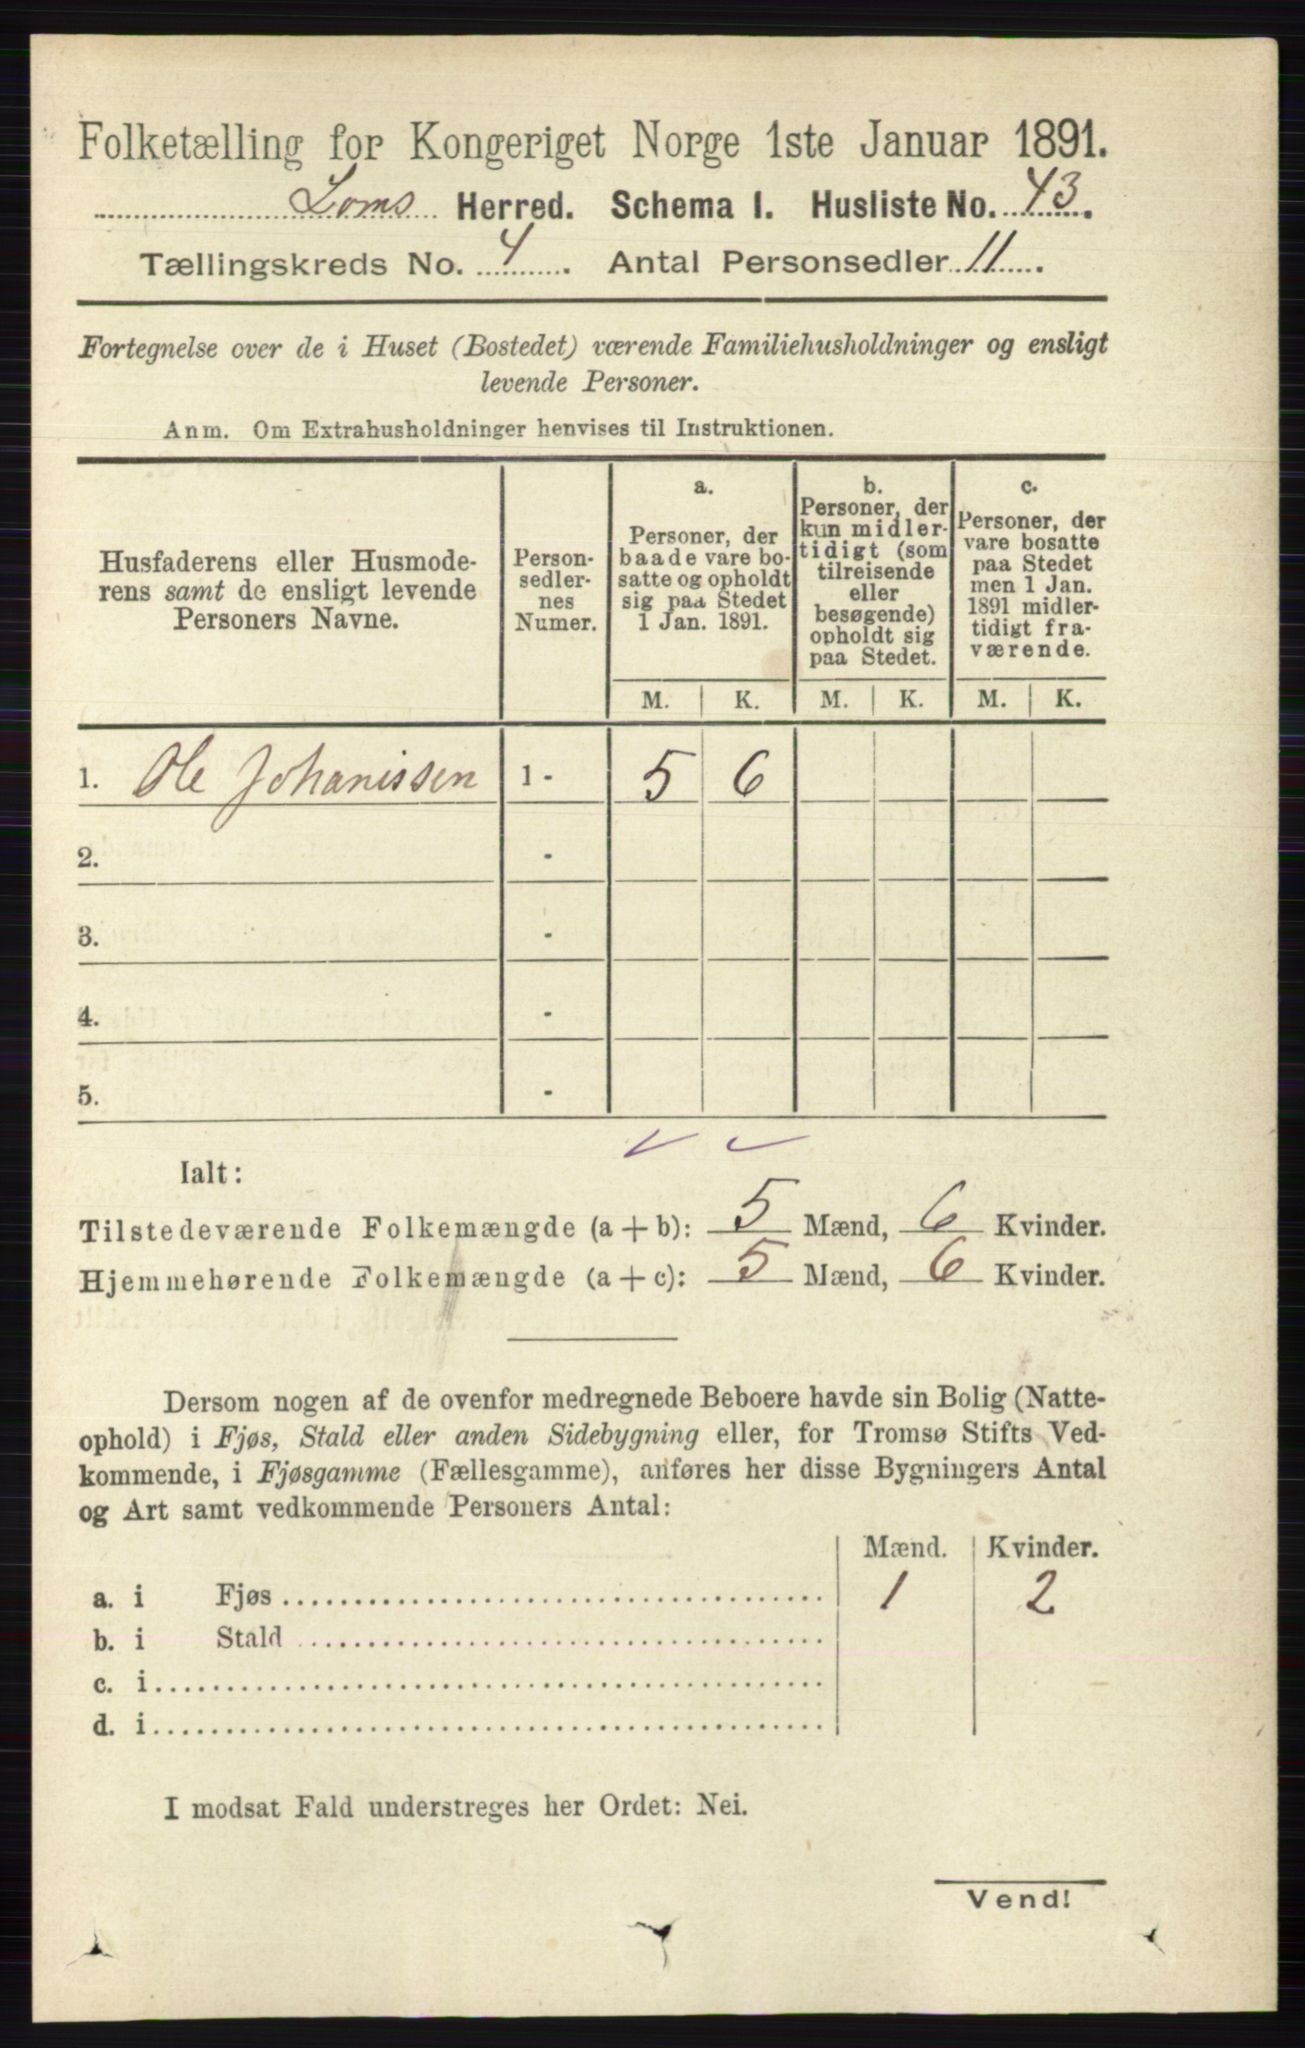 Folketælling for Kongeriget Norge 1ste Januar 1891.
Loms Herred. Schema I. Husliste No. 43.
Tællingskreds No. 4. Antal Personsedler 11.
Fortegnelse over de i Huset (Bostedet) værende Familiehusholdninger og ensligt
levende Personer.
Anm. Om Extrahusholdninger henvises til Instruktionen.
Husfaderens eller Husmode-
rens samt de ensligt levende
Personers Navne.
Person-
sedler-
nes
Numer.
a.
Personer, der
baade vare bo-
satte og opholdt
sig paa Stedet
1 Jan. 1891.
b.
Personer, der
kun midler-
tidigt (som
tilreisende
eller
besøgende)
opholdt sig
paa Stedet.
c.
Personer, der
vare bosatte
paa Stedet
men 1 Jan.
1891 midler-
tidigt fra-
værende.
M. K. M. K. M. K.
1. Ole Johanissen 1 - 5 6
2. -
3. -
4. -
5. -
Ialt:
Tilstedeværende Folkemængde (a + b): 5 Mænd, 6 Kvinder.
Hjemmehørende Folkemængde (a + c): 5 Mænd, 6 Kvinder.
Dersom nogen af de ovenfor medregnede Beboere havde sin Bolig (Natte-
ophold) i Fjøs, Stald eller anden Sidebygning eller, for Tromsø Stifts Ved-
kommende, i Fjøsgamme (Fællesgamme), anføres her disse Bygningers Antal
og Art samt vedkommende Personers Antal:
Mænd. Kvinder.
a. i Fjøs 1 2
b. i Stald
c. i
d. i
I modsat Fald understreges her Ordet: Nei.
Vend!